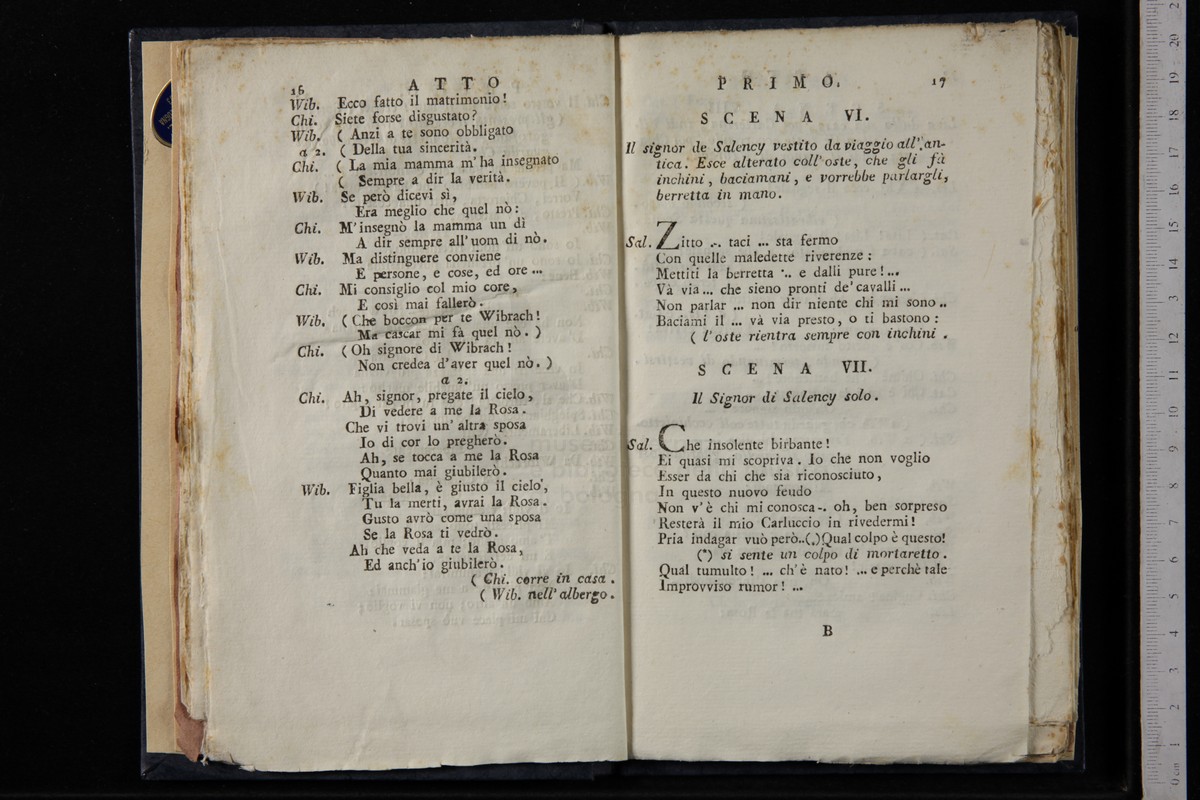 16
A T T O
Wib. Ecco fatto il matrimonio!
Chi. Siete forse disgustato?
Wib. ( Anzi a te sono obbligato
a 2. ( Della tua sincerità.
Chi. ( La mia mamma m'ha insegnato
( Sempre a dir la verità.
Wib. Se però dicevi sì,
Era meglio che quel nò:
Chi. M'insegnò la mamma un dì
A dir sempre all'uom di nò.
Wib. Ma distinguere conviene
E persone, e cose, ed ore ...
Chi. Mi consiglio col mio core,
E così mai fallerò.
Wib. ( Che boccon per te Wibrach!
Ma cascar mi fà quel nò. )
Chi. ( Oh signore di Wibrach!
Non credea d'aver quel nò. )
a 2.
Chi. Ah, signor, pregate il cielo,
Di vedere a me la Rosa.
Che vi trovi un' altra sposa
Io di cor lo pregherò.
Ah, se tocca a me la Rosa
Quanto mai giubilerò.
Wib. Figlia bella, è giusto il cielo,
Tu la merti, avrai la Rosa.
Gusto avrò come una sposa
Se la Rosa ti vedrò.
Ah che veda a te la Rosa,
Ed anch'io giubilerò.
( Chi. corre in casa.
( Wib. nell' albergo.
P R I M O.
17
S C E N A VI.
Il signor de Salency vestito da viaggio all' an-
tica. Esce alterato coll' oste, che gli fà
inchini, baciamani, e vorrebbe parlargli,
berretta in mano.
Sal. Zitto ... taci ... sta fermo
Con quelle maledette riverenze:
Mettiti la berretta ... e dalli pure!...
Và via ... che sieno pronti de' cavalli ...
Non parlar ... non dir niente chi mi sono..
Baciami il ... và via presto, o ti bastono:
( l' oste rientra sempre con inchini.
S C E N A VII.
Il Signor di Salency solo.
Sal. Che insolente birbante!
Ei quasi mi scopriva. Io che non voglio
Esser da chi che sia riconosciuto,
In questo nuovo feudo
Non v'è chi mi conosca.. oh, ben sorpreso
Resterà il mio Carluccio in rivedermi!
Pria indagar vuò però..(*)Qual colpo è questo!
(*) si sente un colpo di mortaretto.
Qual tumulto! ... ch'è nato! ... e perchè tale
Improvviso rumor! ...
B